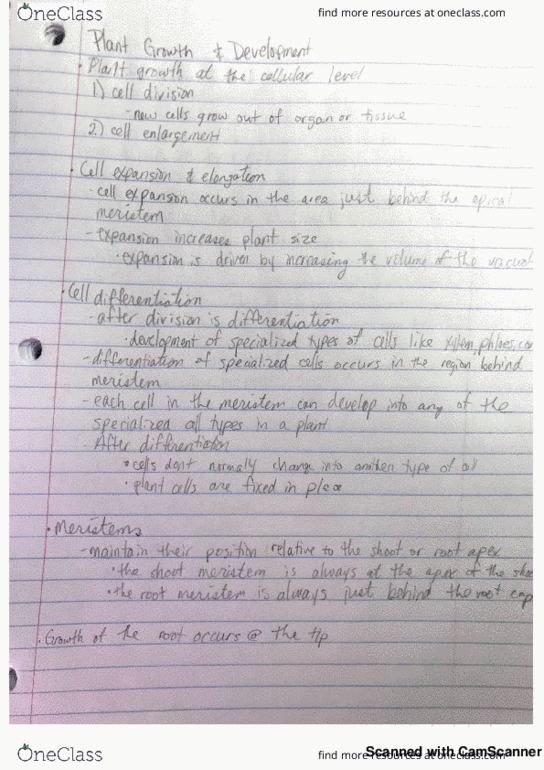 OneClass
find more resources at oneclass.com
Plant Growth & Development
• Plant growth at the cellular level
1) cell division
-new cells grow out of organ or tissue
2) cell enlargement
• Cell expansion & elongation
-cell expansion occurs in the area just behind the apical
meristem
- expansion increases plant size
• expansion is driven by increasing the volume of the vacuol
• Cell differentiation
- after division is differentiation
• development of specialized types of cells like xylem, phloem, co
- differentiation of specialized cells occurs in the region behind
meristem
- each cell in the meristem can develop into any of the
specialized cell types in a plant
- After differentiation
• cells don't normally change into another type of cell
• plant cells are fixed in place
• Meristems
- maintain their position relative to the shoot or root apex
• the shoot meristem is always at the apex of the shoo
• the root meristem is always just behind the root cap
• Growth of the root occurs @ the tip
OneClass
find more resources at oneclass.com
Scanned with CamScanner